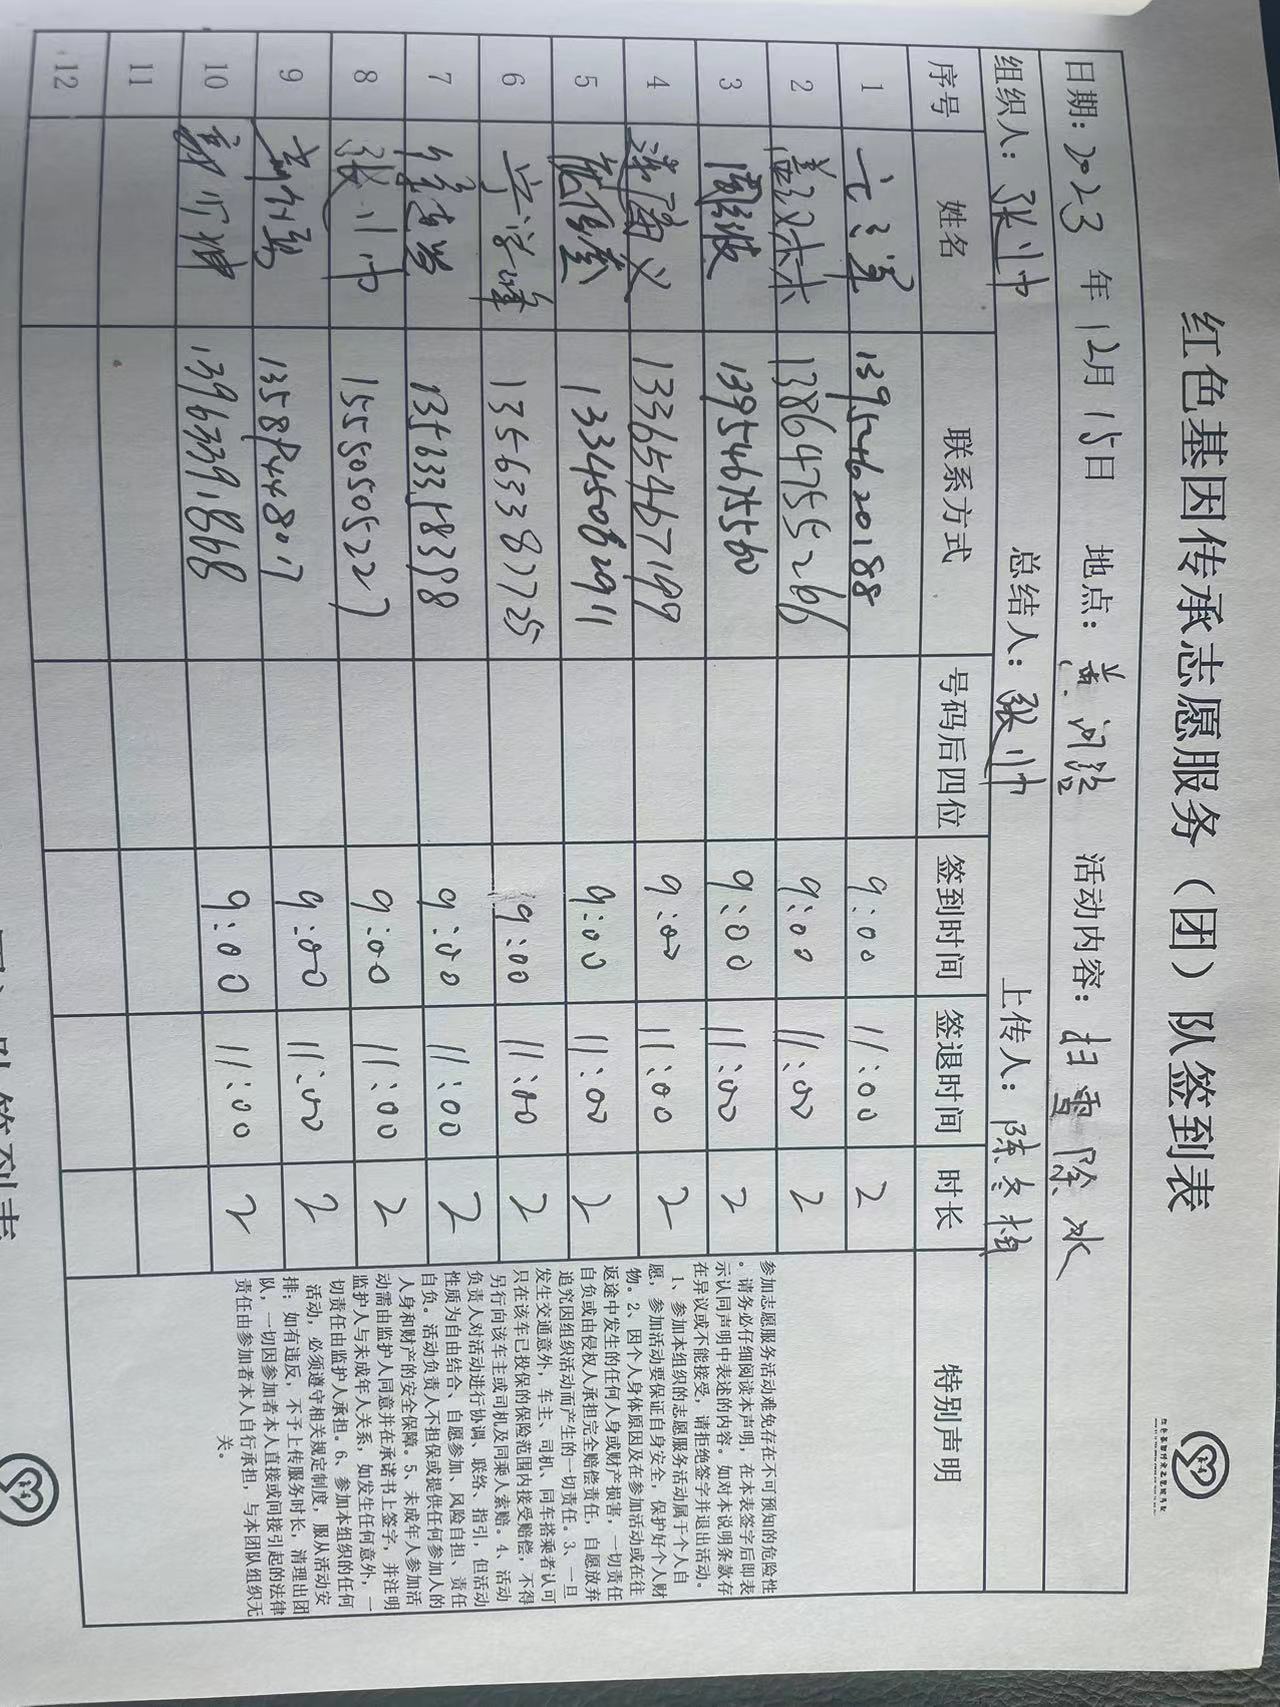 红色基因传承志愿服务（团）队签到表
日期：2023 年 12月 15日 地点：黄河路 活动内容：扫雪除冰
组织人：张帅 总结人：张帅 上传人：陈冬梅
序号 姓名 联系方式 号码后四位 签到时间 签退时间 时长 特别声明
1 13954620188 9:00 11:00 2
2 13864755266 9:00 11:00 2
3 周波 13954675560 9:00 11:00 2
4 13365467199 9:00 11:00 2
5 13345062911 9:00 11:00 2
6 13563387725 9:00 11:00 2
7 9:00 11:00 2
8 张帅 15550505227 9:00 11:00 2
9 9:00 11:00 2
10 13963391868 9:00 11:00 2
11
12
参加志愿服务活动难免存在不可预知的危险性
。请务必仔细阅读本声明，在本表签字后即表
示认同声明中表述的内容。如对本说明条款存
在异议或不能接受，请拒绝签字并退出活动。
1、参加本组织的志愿服务活动属于个人自
愿，参加活动要保证自身安全，保护好个人财
物。2、因个人身体原因及在参加活动或在往
返途中发生的任何人身或财产损害，一切责任
自负或由侵权人承担完全赔偿责任，自愿放弃
追究因组织活动而产生的一切责任。3、一旦
发生交通意外，车主、司机、同车搭乘者认可
只在该车已投保的保险范围内接受赔偿，不得
另行向该车主或司机及同乘人索赔。4、活动
负责人对活动进行协调、联络、指引，但活动
性质为自由结合、自愿参加、风险自担、责任
自负。活动负责人不担保或提供任何参加人的
人身和财产的安全保障。5、未成年人参加活
动需由监护人同意并在承诺书上签字，并注明
监护人与未成年人关系，如发生任何意外，一
切责任由监护人承担。6、参加本组织的任何
活动，必须遵守相关规定制度，服从活动安
排；如有违反，不予上传服务时长，清理出团
队，一切因参加者本人直接或间接引起的法律
责任由参加者本人自行承担，与本团队组织无
关。